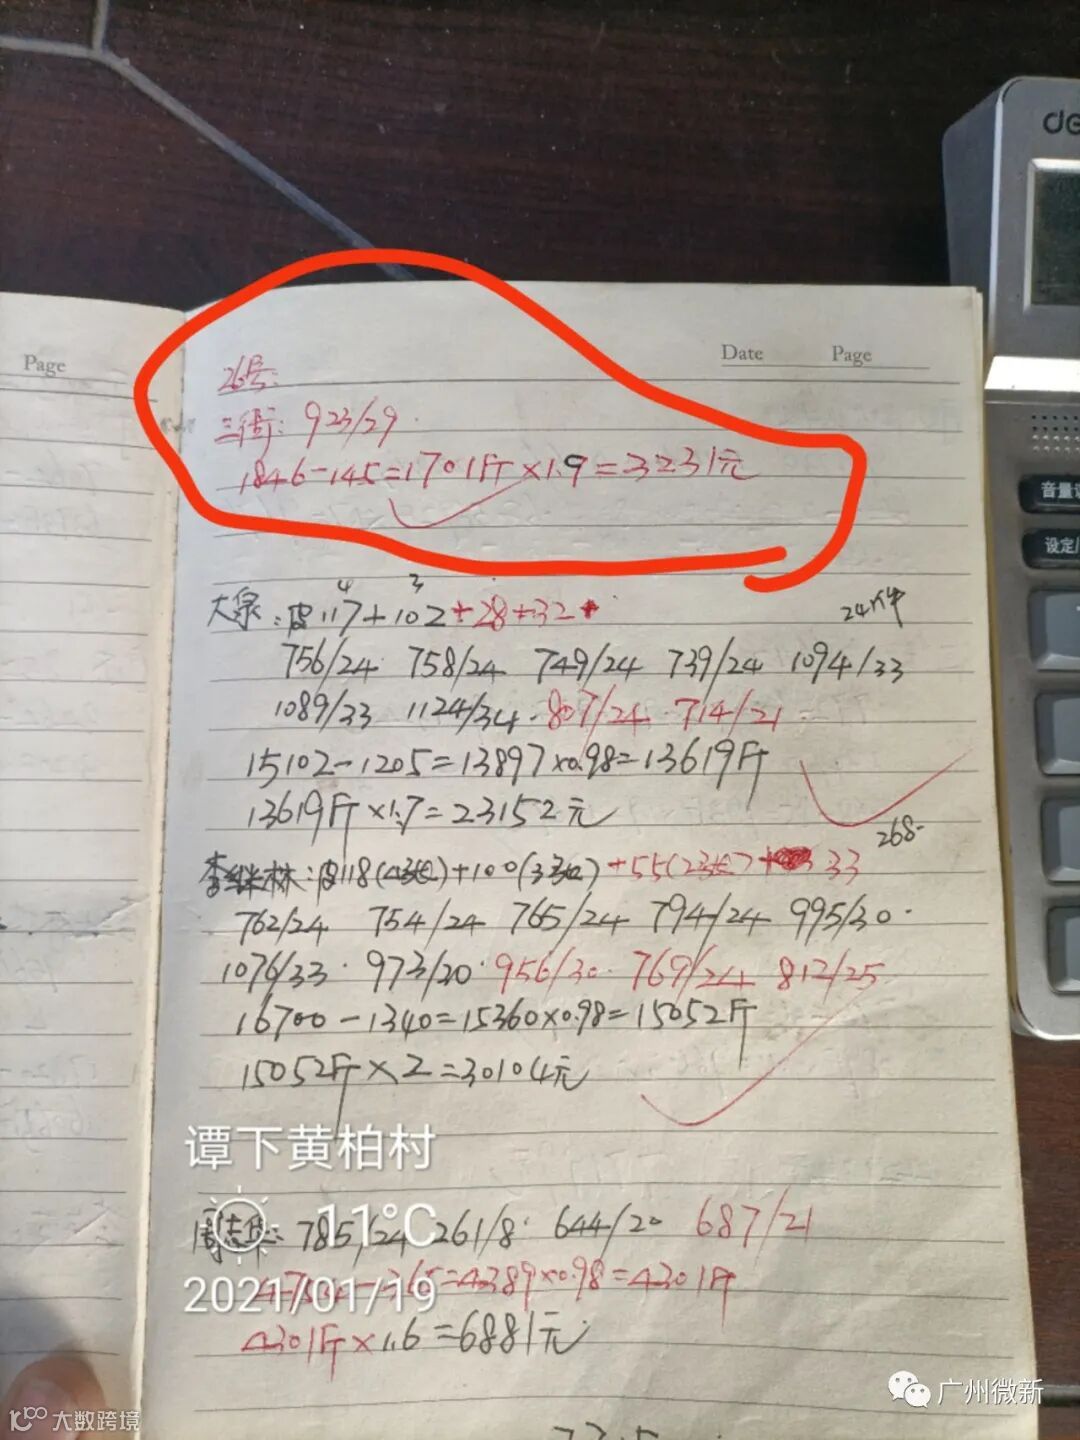 de
Page
Date Page
音量
设定/
26号:
三街: 923/29
1846-145=1701斤×1.9=3231元
大泉:皮117+102+28+32
4 3
24件
756/24 758/24 749/24 739/24 1094/33
1089/33 1124/34 807/24 714/21
15102-1205=13897×0.98=13619斤
13619斤×1.7=23152元
268
李继林:皮118(4)+100(3)+55(2)+33
762/24 754/24 765/24 794/24 995/30
1076/33 973/20 956/30 769/24 812/25
16700-1340=15360×0.98=15052斤
15052斤×2=30104元
谭下黄柏村
11°C
周志华: 785/24 261/8 644/20 687/21
2021/01/19
-365=4389×0.98=4301斤
4301斤×1.6=6881元
广州微新
大数跨境